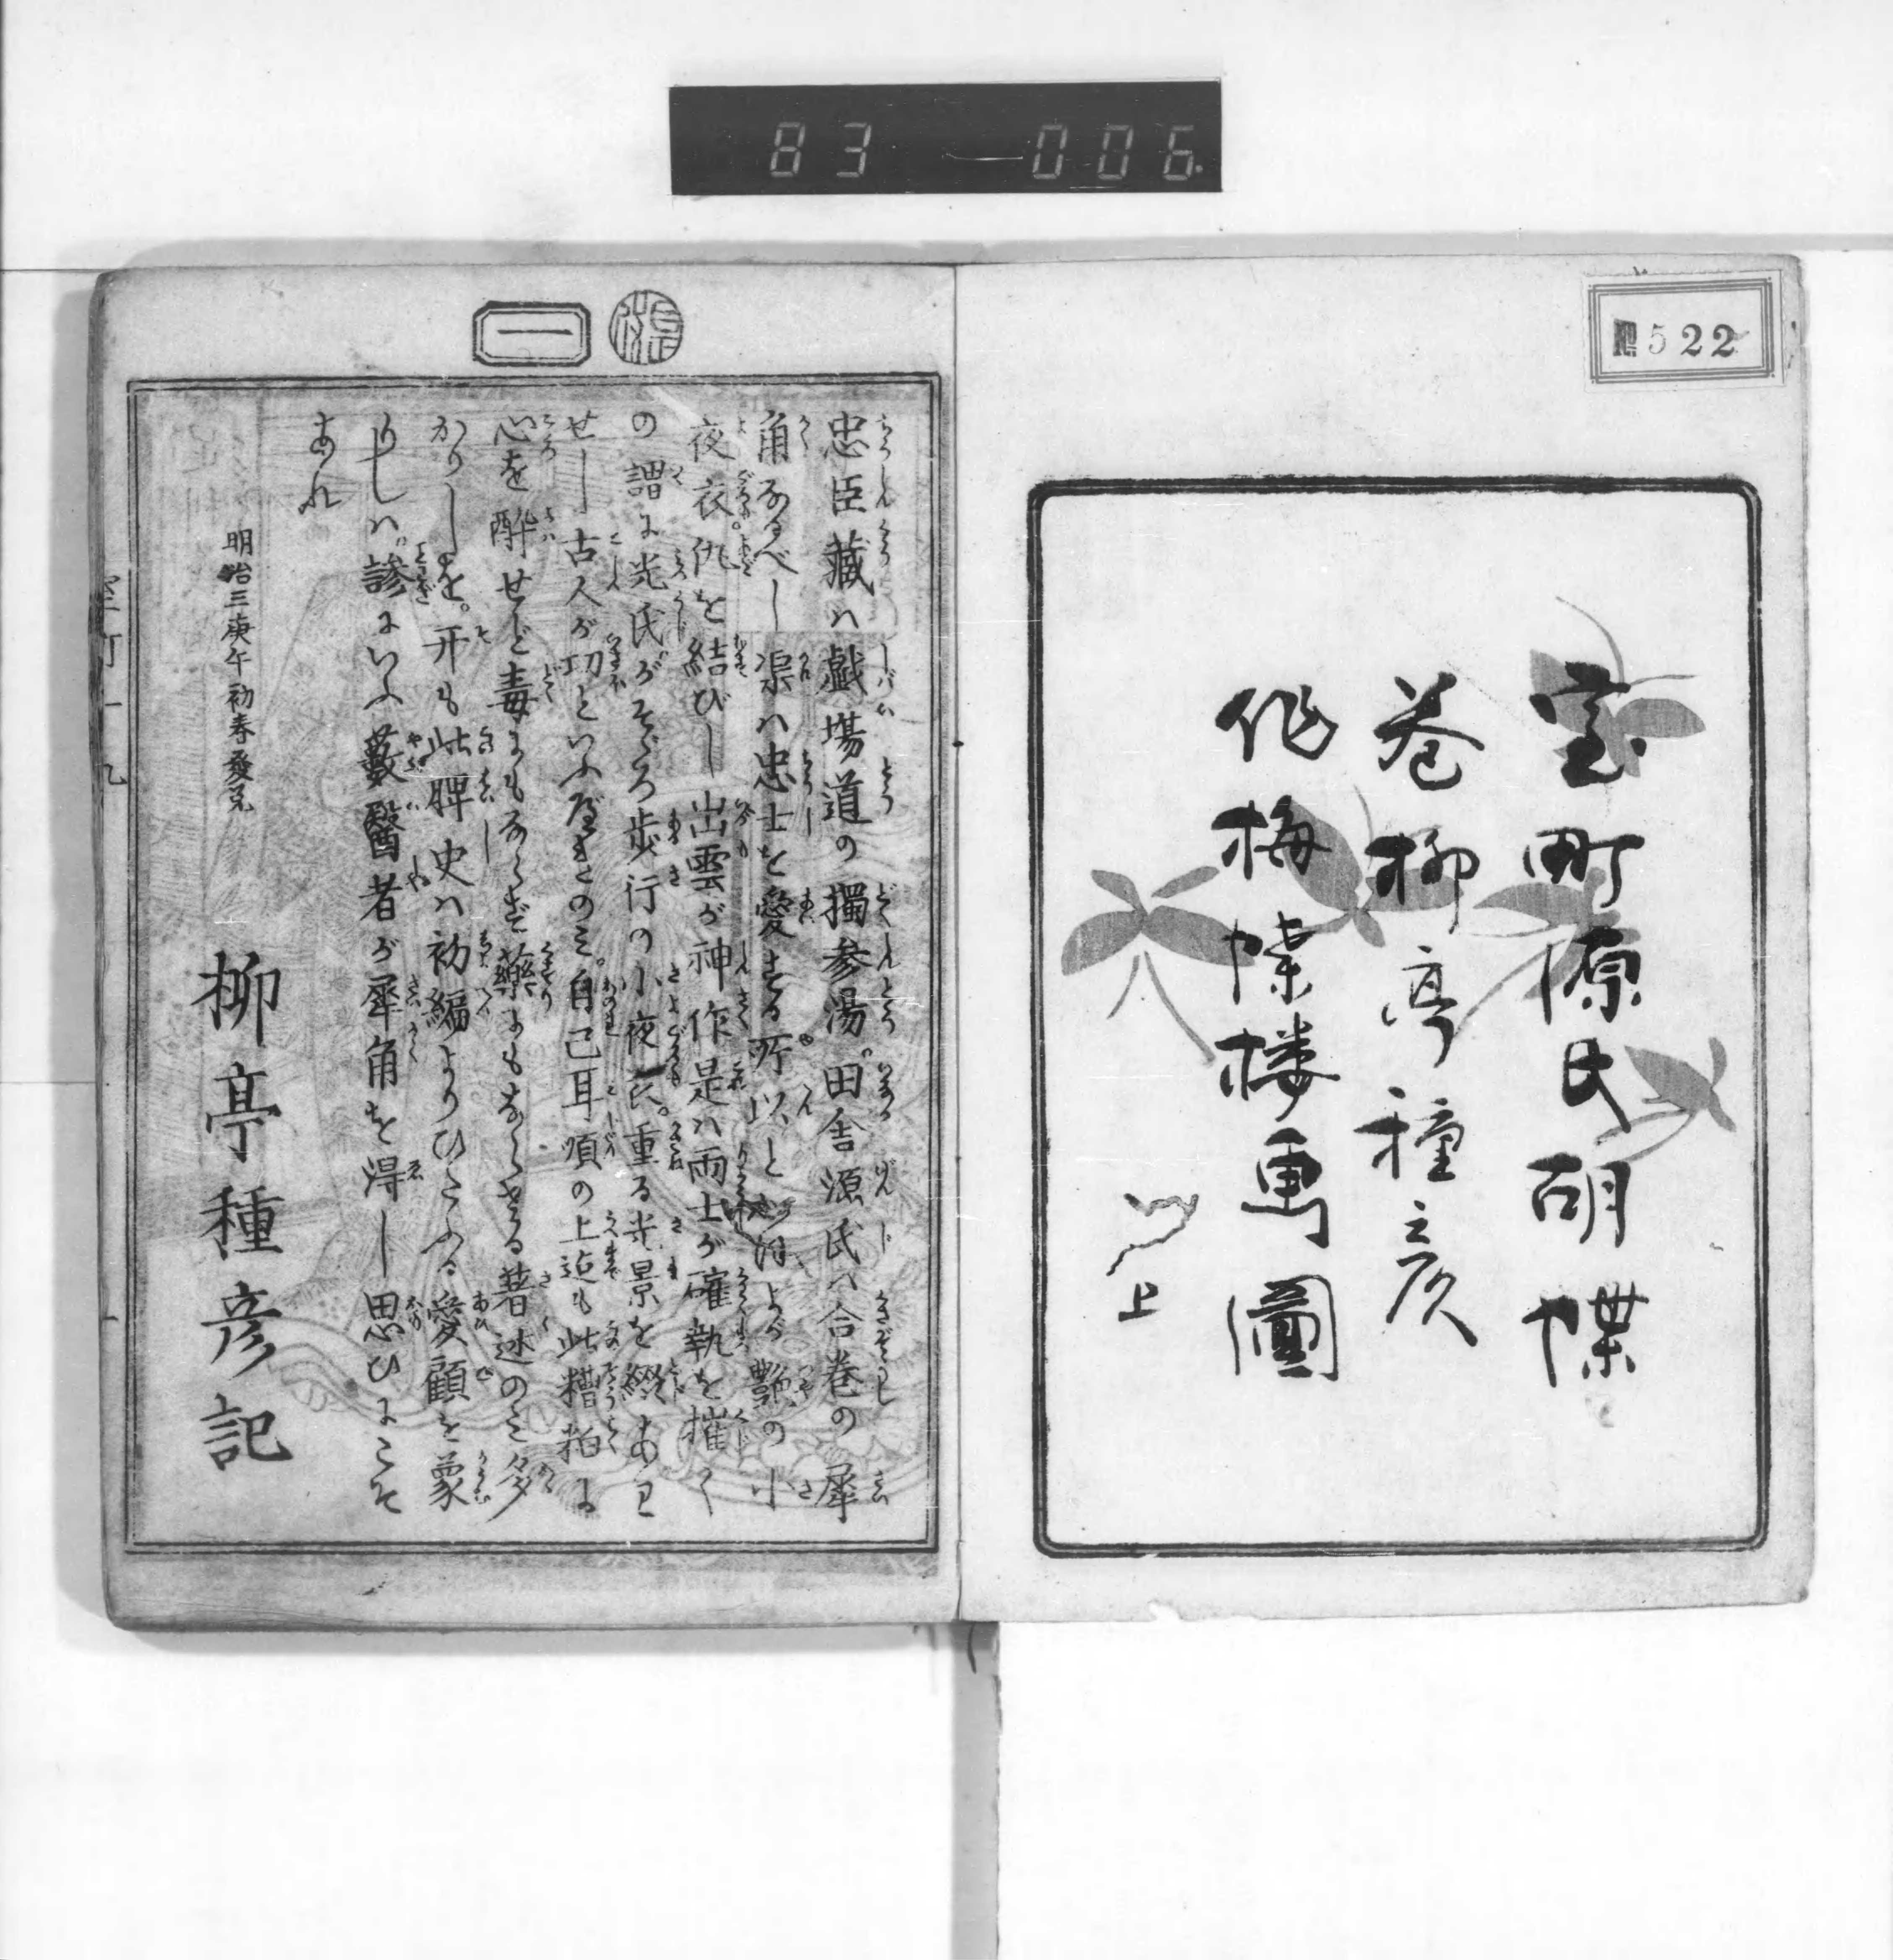 83-006
522
室町源氏胡蝶
巻柳亭種彦
作梅蝶楼画圖
上
一
忠臣藏ハ戯塲道の獨参湯。田舎源氏ハ合巻の犀
角なるべし渠ハ忠士を愛する所以と よが艶の小
夜衣。仇を結びし出雲が神作是ハ両士が確執を摧く
の謂は光氏がそゞろ歩行の小夜衣。重る光景を綴あわ
せし古人が功といふ べきのミ。自己耳順の上迠も此糟粕に
心を酔せど毒にもならず藥にもならざる著述のミ多
かりしを。开も此脾史ハ初編よりひたふる愛顧を蒙
りしハ。諺にいふ藪醫者が犀角を得し思ひにこそ
あれ
明治三庚午初春發兌
柳亭種彦記
室町十九